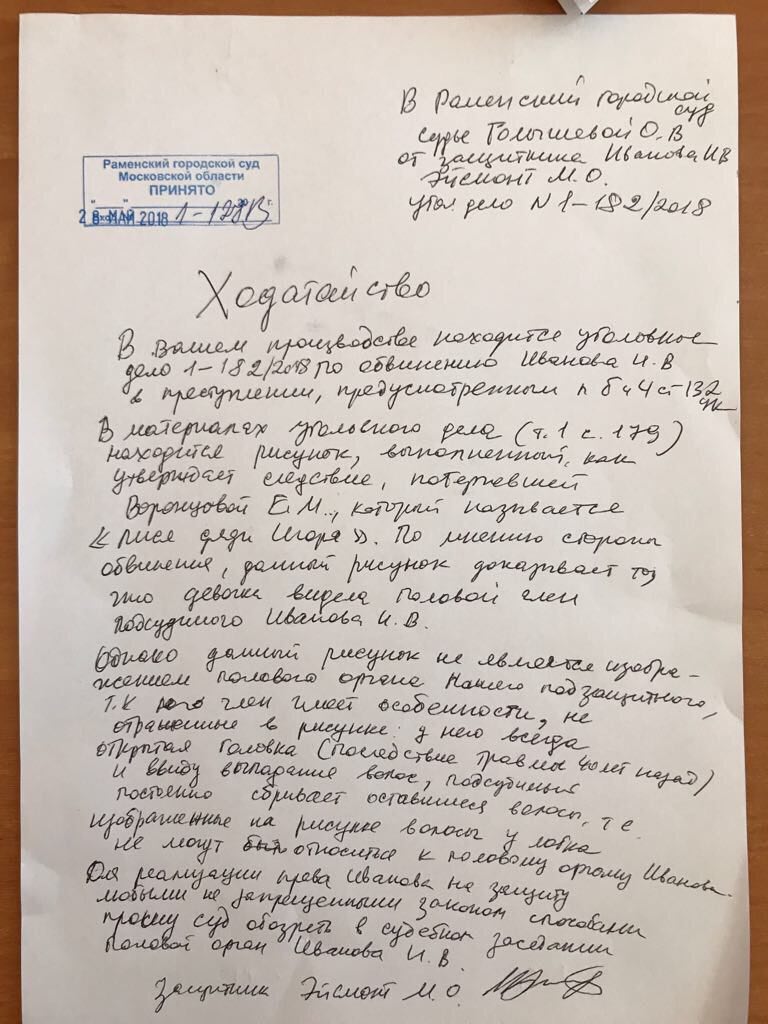 В Раменский городской
суд
судье Голышевой О.В
от защитника Иванова И.В
Эйсмонт М.О.
угол. дело N 1-182/2018
Раменский городской суд
Московской области
ПРИНЯТО
28 МАЙ 2018
Ходатайство
В вашем производстве находится уголовное
дело 1-182/2018 по обвинению Иванова И.В
в преступлении, предусмотренным п б ч 4 ст 132
УК
В материалах уголовного дела (т. 1 с. 179)
находится рисунок, выполненный, как
утверждает следствие, потерпевшей
Воронцовой Е.М., который называется
« писе дяди Игоря ». По мнению стороны
обвинения, данный рисунок доказывает то,
что девочка видела половой член
подсудимого Иванова И.В.
Однако данный рисунок не является изобра-
жением полового органа нашего подзащитного,
т.к его член имеет особенности, не
отраженные в рисунке: у него всегда
открытая головка (последствие травмы 40 лет назад)
и ввиду выпадания волос, подсудимый
постоянно сбривает оставшиеся волосы, т е.
изображенные на рисунке волосы у лобка
не могут относиться к половому органу Иванова.
Для реализации права Иванова на защиту
любыми не запрещенными законом способами
прошу суд обозреть в судебном заседании
половой орган Иванова И.В.
Защитник Эйсмонт М.О.